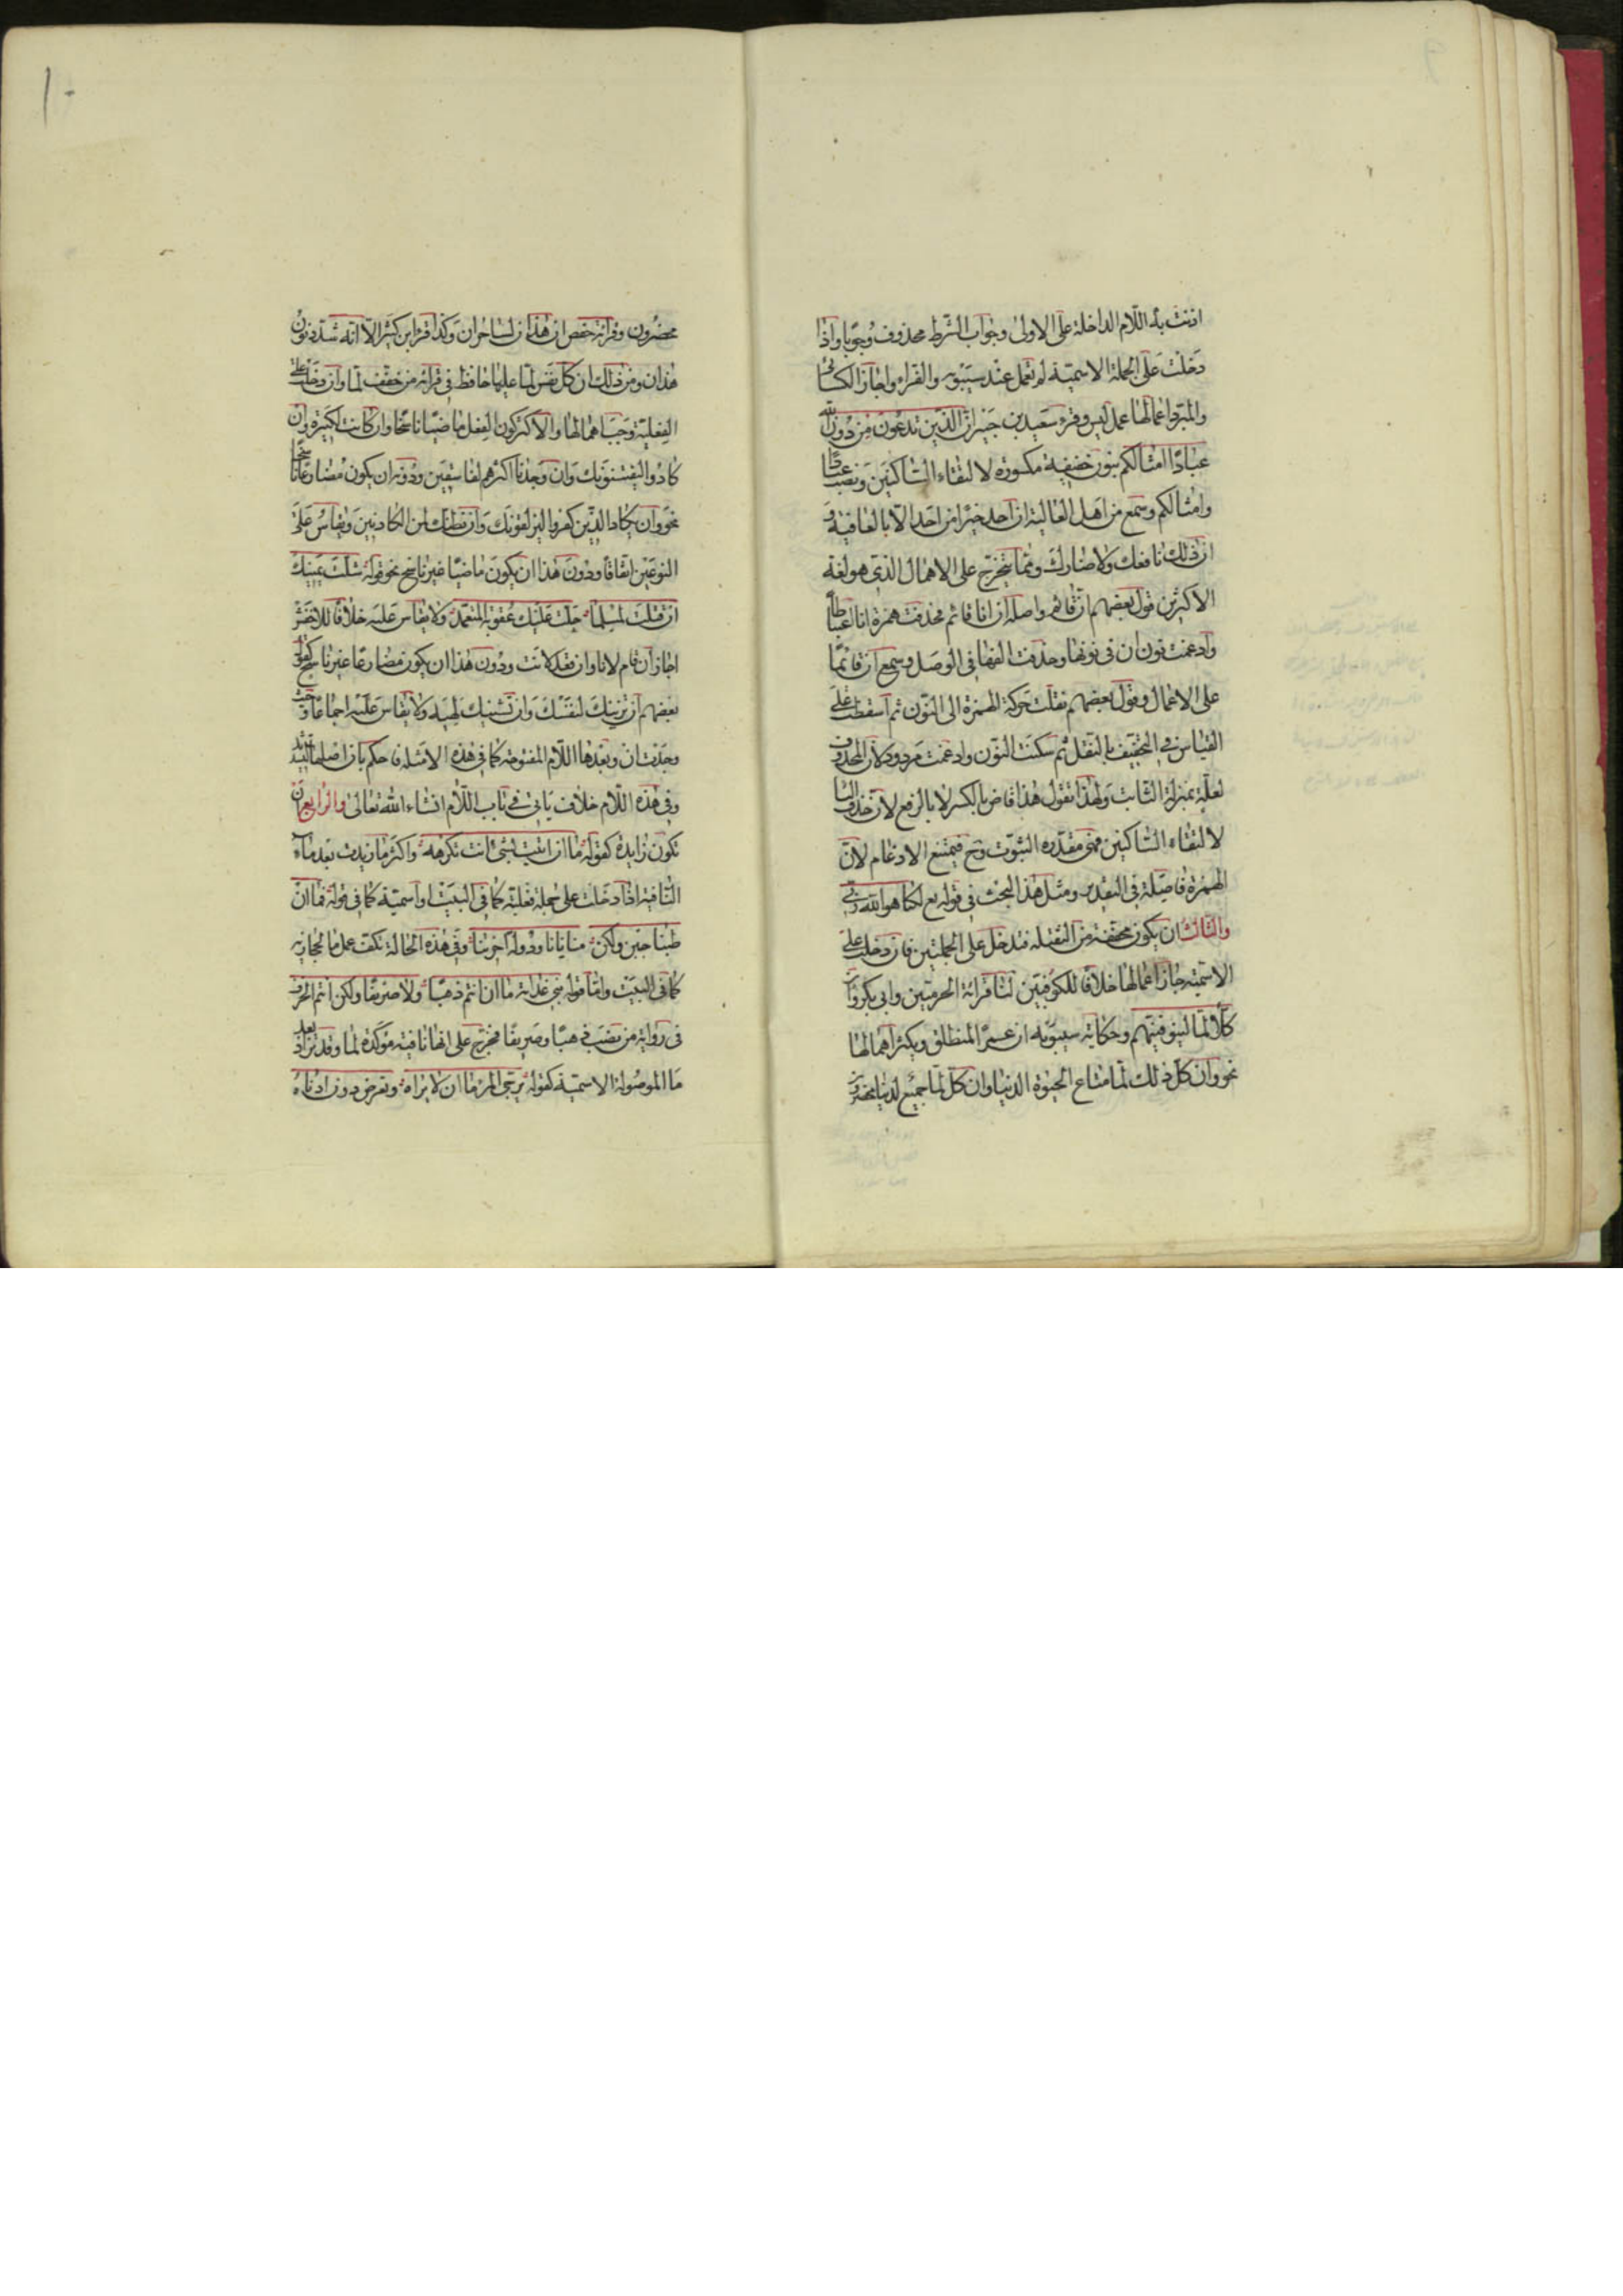 اذنت به اللّام الداخلة على الاولى وجواب الشرط محذوف وجوبا واذا
دخلت على الجملة الاسمية لم تعمل عند سيبويه والفراء واجاز الكسائى
والمبرد اعمالها عمل ليس وقرء سعيد بن جبير ان الذين تدعون من دون الله
عبادًا امثالكم بنون خفيفة مكسورة لالتقاء الساكنين ونصب عبادا
وامثالكم وسمع من اهل العالية ان احد خيرا من احد الا بالعافية و
ان ذلك نافعك ولا ضارك ومما يتخرج على الاهمال الذي هو لغة
الاكثرين قول بعضهم ان قائم واصله ان انا قائم فحذفت همزة انا اعتباطا
وادغمت نون ان في نونها وحذفت الفها في الوصل وسمع ان قائما
على الاعمال وقول بعضهم نقلت حركة الهمزة الى النون ثم اسقطت على
القياس في التخفيف بالنقل ثم سكنت النون وادغمت مردود لان المحذوف
لعلة بمنزلة الثابت ولهذا تقول هذا قاض بالكسر لا بالرفع لان حذف اليا
لالتقاء الساكنين فهى مقدرة الثبوت وح فيمتنع الادغام لان
الهمزة فاصلة في التقدير ومثل هذا البحث في قوله تع لكنا هو الله ربى
والثالث ان يكون مخففة من الثقيلة فتدخل على الجملتين فان دخلت على
الاسمية جاز اعمالها خلافا للكوفيين لنا قراءة الحرميين وابى بكر وان
كلا لما ليوفينهم وحكاية سيبويه ان عمرا لمنطلق ويكثر اهمالها
نحو وان كل ذلك لما متاع الحيوة الدنيا وان كل لما جميع لدينا محضرون
١٠
محضرون وقراءة حفص ان هذان لساحران وكذا قرء ابن كثير الا انه شدد نون
هذان ومن ذلك ان كل نفس لما عليها حافظ في قراءة من خفف لما وان دخلت على
الفعلية وجب اهمالها والاكثر كون الفعل ماضيا ناسخا وان كانت لكبيرة وان
كادوا ليفتنونك وان وجدنا اكثرهم لفاسقين ودونه ان يكون مضارعا ناسخا
نحو وان يكاد الذين كفروا ليزلقونك وان نظنك لمن الكاذبين ويقاس على
النوعين اتفاقا ودون هذا ان يكون ماضيا غير ناسخ نحو قوله شلت يمينك
ان قتلت لمسلما حلت عليك عقوبة المتعمد ولا يقاس عليه خلافا للاخفش
اجاز ان قام لانا وان قعد لانت ودون هذا ان يكون مضارعا غير ناسخ كقول
بعضهم ان يزينك لنفسك وان يشينك لهيه ولا يقاس عليه اجماعا وحيث
وجدت ان وبعدها اللام المفتوحة كما في هذه الامثلة فاحكم بان اصلها التشديد
وفي هذه اللام خلاف ياتى في باب اللام انشاء الله تعالى والرابع ان
تكون زايدة كقوله ما ان اتيت بشئ انت تكرهه واكثر ما زيدت بعد ماء
النافية اذا دخلت على جملة فعلية كما في البيت او اسمية كما في قوله فما ان
طبنا جبن ولكن منايانا ودولة اخرينا وفي هذه الحالة تكف عمل ما الحجازية
كما في البيت واما قوله بنى غدانة ما ان انتم ذهبا ولا صريفا ولكن انتم الخزف
في رواية من نصب ذهبا وصريفا فخرج على انها نافية مؤكدة لما وقد تزاد بعد
ما الموصولة الاسمية كقوله يرجى المرء ما ان لا يراه وتعرض دون ادناه